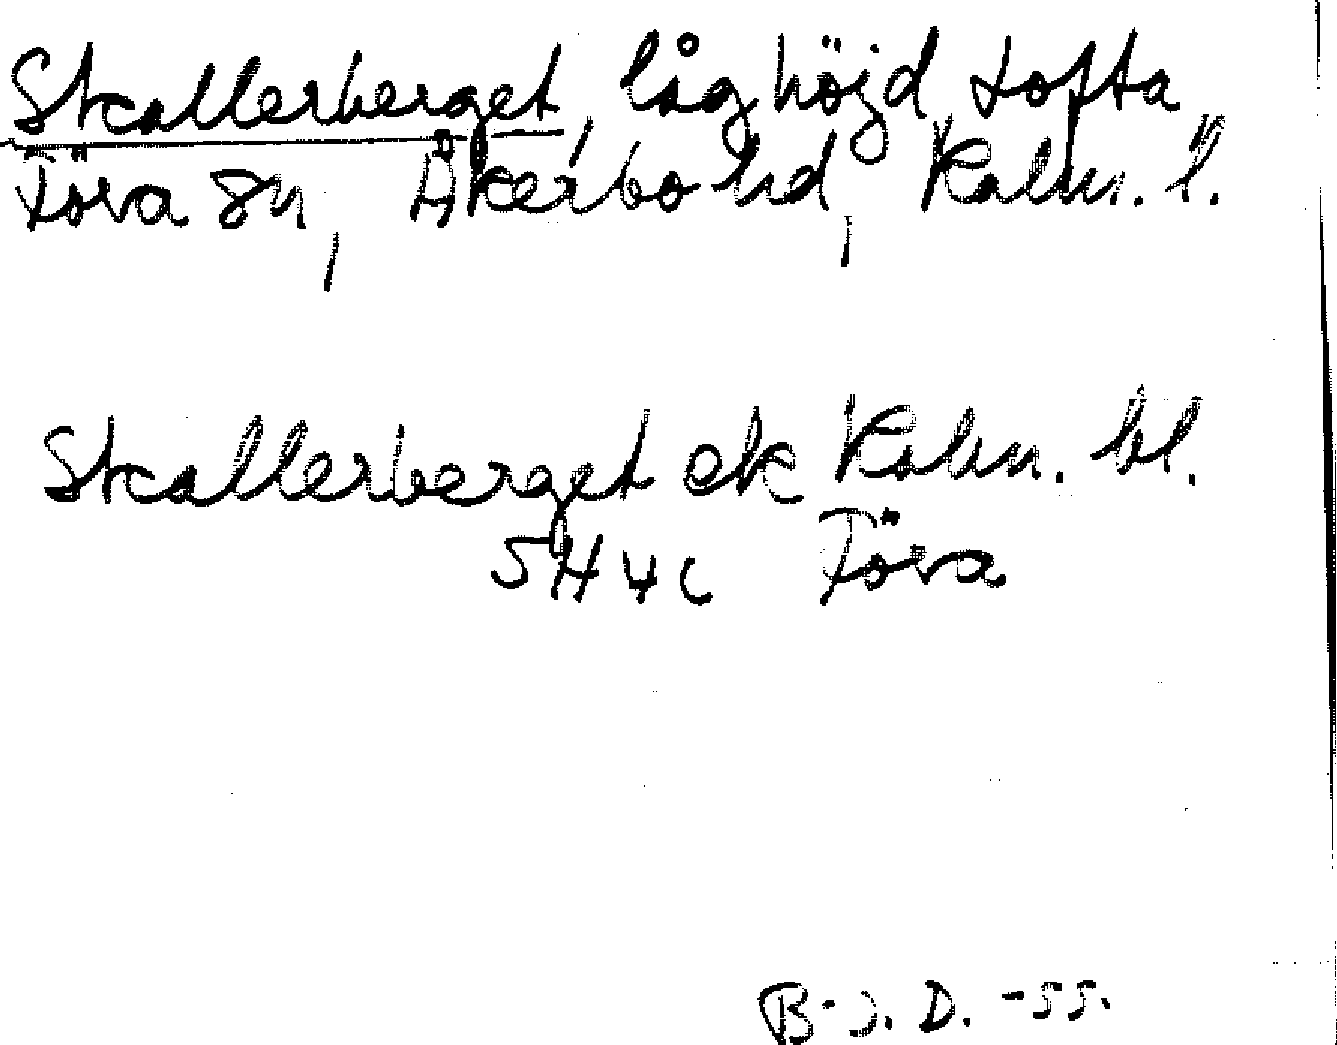 Skallerberget, låg höjd Tofta
Föra sn, Åkerbo hd, Kalm. l.
Skallerberget ek Kalm. bl.
5H4c Föra
B-J. D. -55.